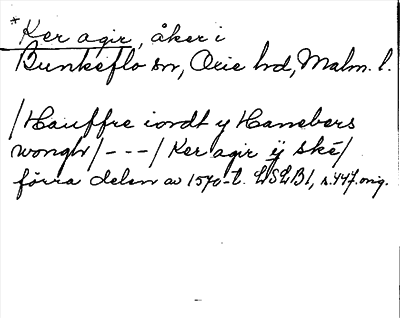 *Ker agir, åker i
Bunkeflo sn, Oxie hd, Malm. l.
/Hauffre iordt y Hansbers
wongh/---/ Ker agir ÿ ske/
förra delen av 1570-t. LSLB1, s.447. orig.